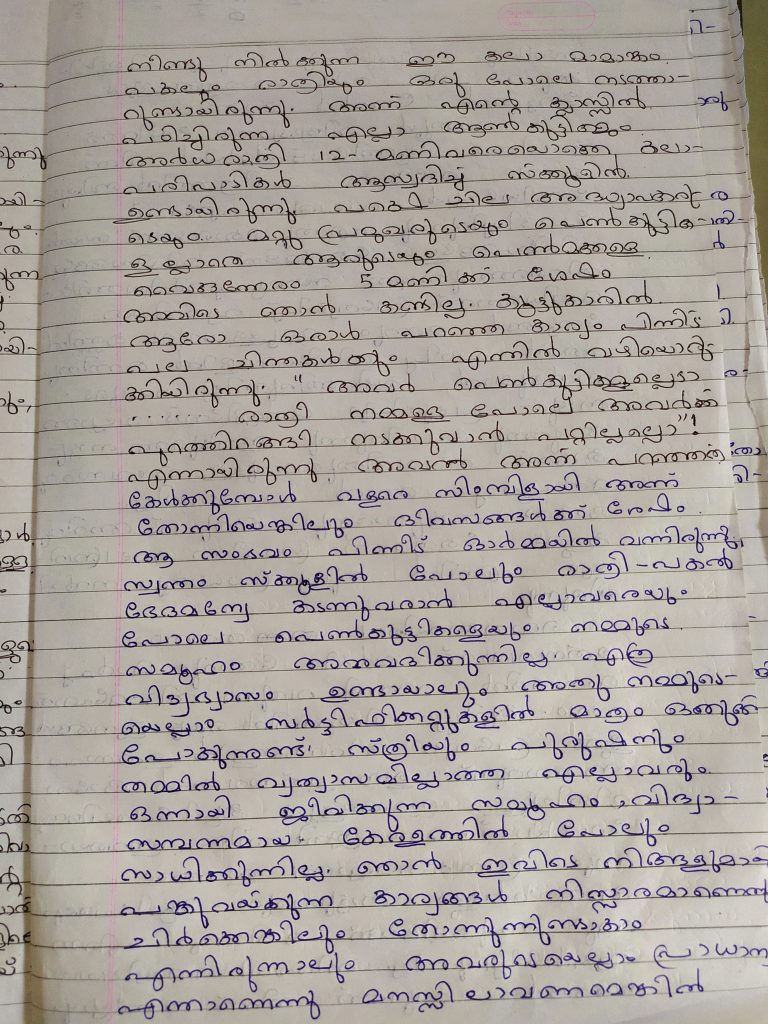 നീണ്ടു നിൽക്കുന്ന ഈ കലാ മാമാങ്കം
പകലും രാത്രിയും ഒരു പോലെ നടത്താ-
റുണ്ടായിരുന്നു. അന്ന് എന്റെ ക്ലാസ്സിൽ
പഠിച്ചിരുന്ന എല്ലാ ആൺകുട്ടികളും
അർധരാത്രി 12- മണിവരെയൊക്കെ കലാ-
പരിപാടികൾ ആസ്വദിച്ച് സ്ക്കൂളിൽ
ഉണ്ടായിരുന്നു പക്ഷെ ചില അദ്ധ്യാപകരു
ടെയും മറ്റു പ്രമുഖരുടെയും പെൺകുട്ടിക-
ളല്ലാതെ ആരുടെയും പെൺമക്കളെ
വൈകുന്നേരം 5 മണിക്ക് ശേഷം
അവിടെ ഞാൻ കണ്ടില്ല. കൂട്ടുകാരിൽ
ആരോ ഒരാൾ പറഞ്ഞ കാര്യം പിന്നീട്
പല ചിന്തകൾക്കും എന്നിൽ വഴിയൊരു-
ക്കിയിരുന്നു. " അവർ പെൺകുട്ടികളല്ലെടാ
....... രാത്രി നമ്മളെ പോലെ അവർക്ക്
പുറത്തിറങ്ങി നടക്കുവാൻ പറ്റില്ലല്ലൊ"!
എന്നായിരുന്നു അവൻ അന്ന് പറഞ്ഞത്
കേൾക്കുമ്പോൾ വളരെ സിംമ്പിളായി അന്ന്
തോന്നിയെങ്കിലും ദിവസങ്ങൾക്ക് ശേഷം
ആ സംഭവം പിന്നീട് ഓർമ്മയിൽ വന്നിരുന്നു,
സ്വന്തം സ്ക്കൂളിൽ പോലും രാത്രി-പകൽ
ഭേദമന്യേ കടന്നുവരാൻ എല്ലാവരെയും
പോലെ പെൺകുട്ടികളെയും നമ്മുടെ
സമൂഹം അനുവദിക്കുന്നില്ല. എത്ര
വിദ്യഭ്യാസം ഉണ്ടായാലും അതു നമ്മുടെ-
യെല്ലാം സർട്ടിഫിക്കറ്റുകളിൽ മാത്രം ഒതുങ്ങി
പോകുന്നുണ്ട്. സ്ത്രീയും പുരുഷനും
തമ്മിൽ വ്യത്യാസമില്ലാത്ത എല്ലാവരും
ഒന്നായി ജീവിക്കുന്ന സമൂഹം, വിദ്യാ-
സമ്പന്നമായ കേരളത്തിൽ പോലും
സാധിക്കുന്നില്ല. ഞാൻ ഇവിടെ നിങ്ങളുമായി
പങ്കുവയ്ക്കുന്ന കാര്യങ്ങൾ നിസ്സാരമാണെന്ന്
ചിർക്കെങ്കിലും തോന്നുന്നുണ്ടാകാം
എന്നിരുന്നാലും അവരുടെയെല്ലാം പ്രാധാന്യ
എന്താണെന്നു മനസ്സിലാവണമെങ്കിൽ